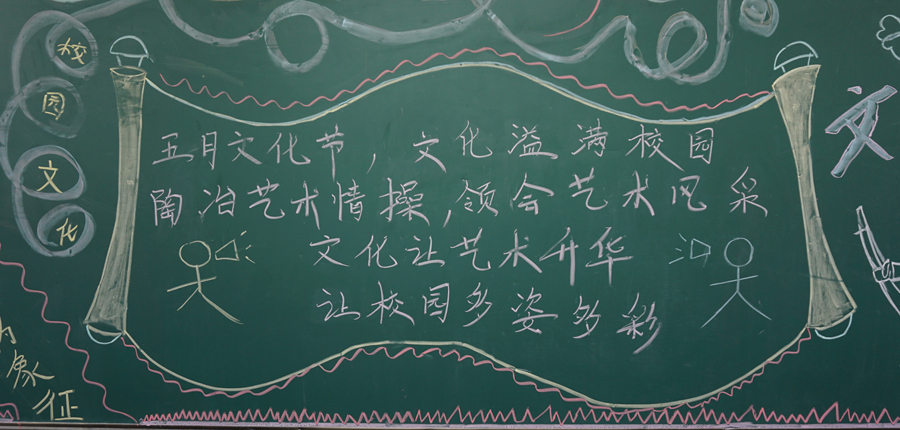 校园文化
五月文化节，文化溢满校园
陶冶艺术情操，领会艺术风采
文化让艺术升华
让校园多姿多彩
文
象征